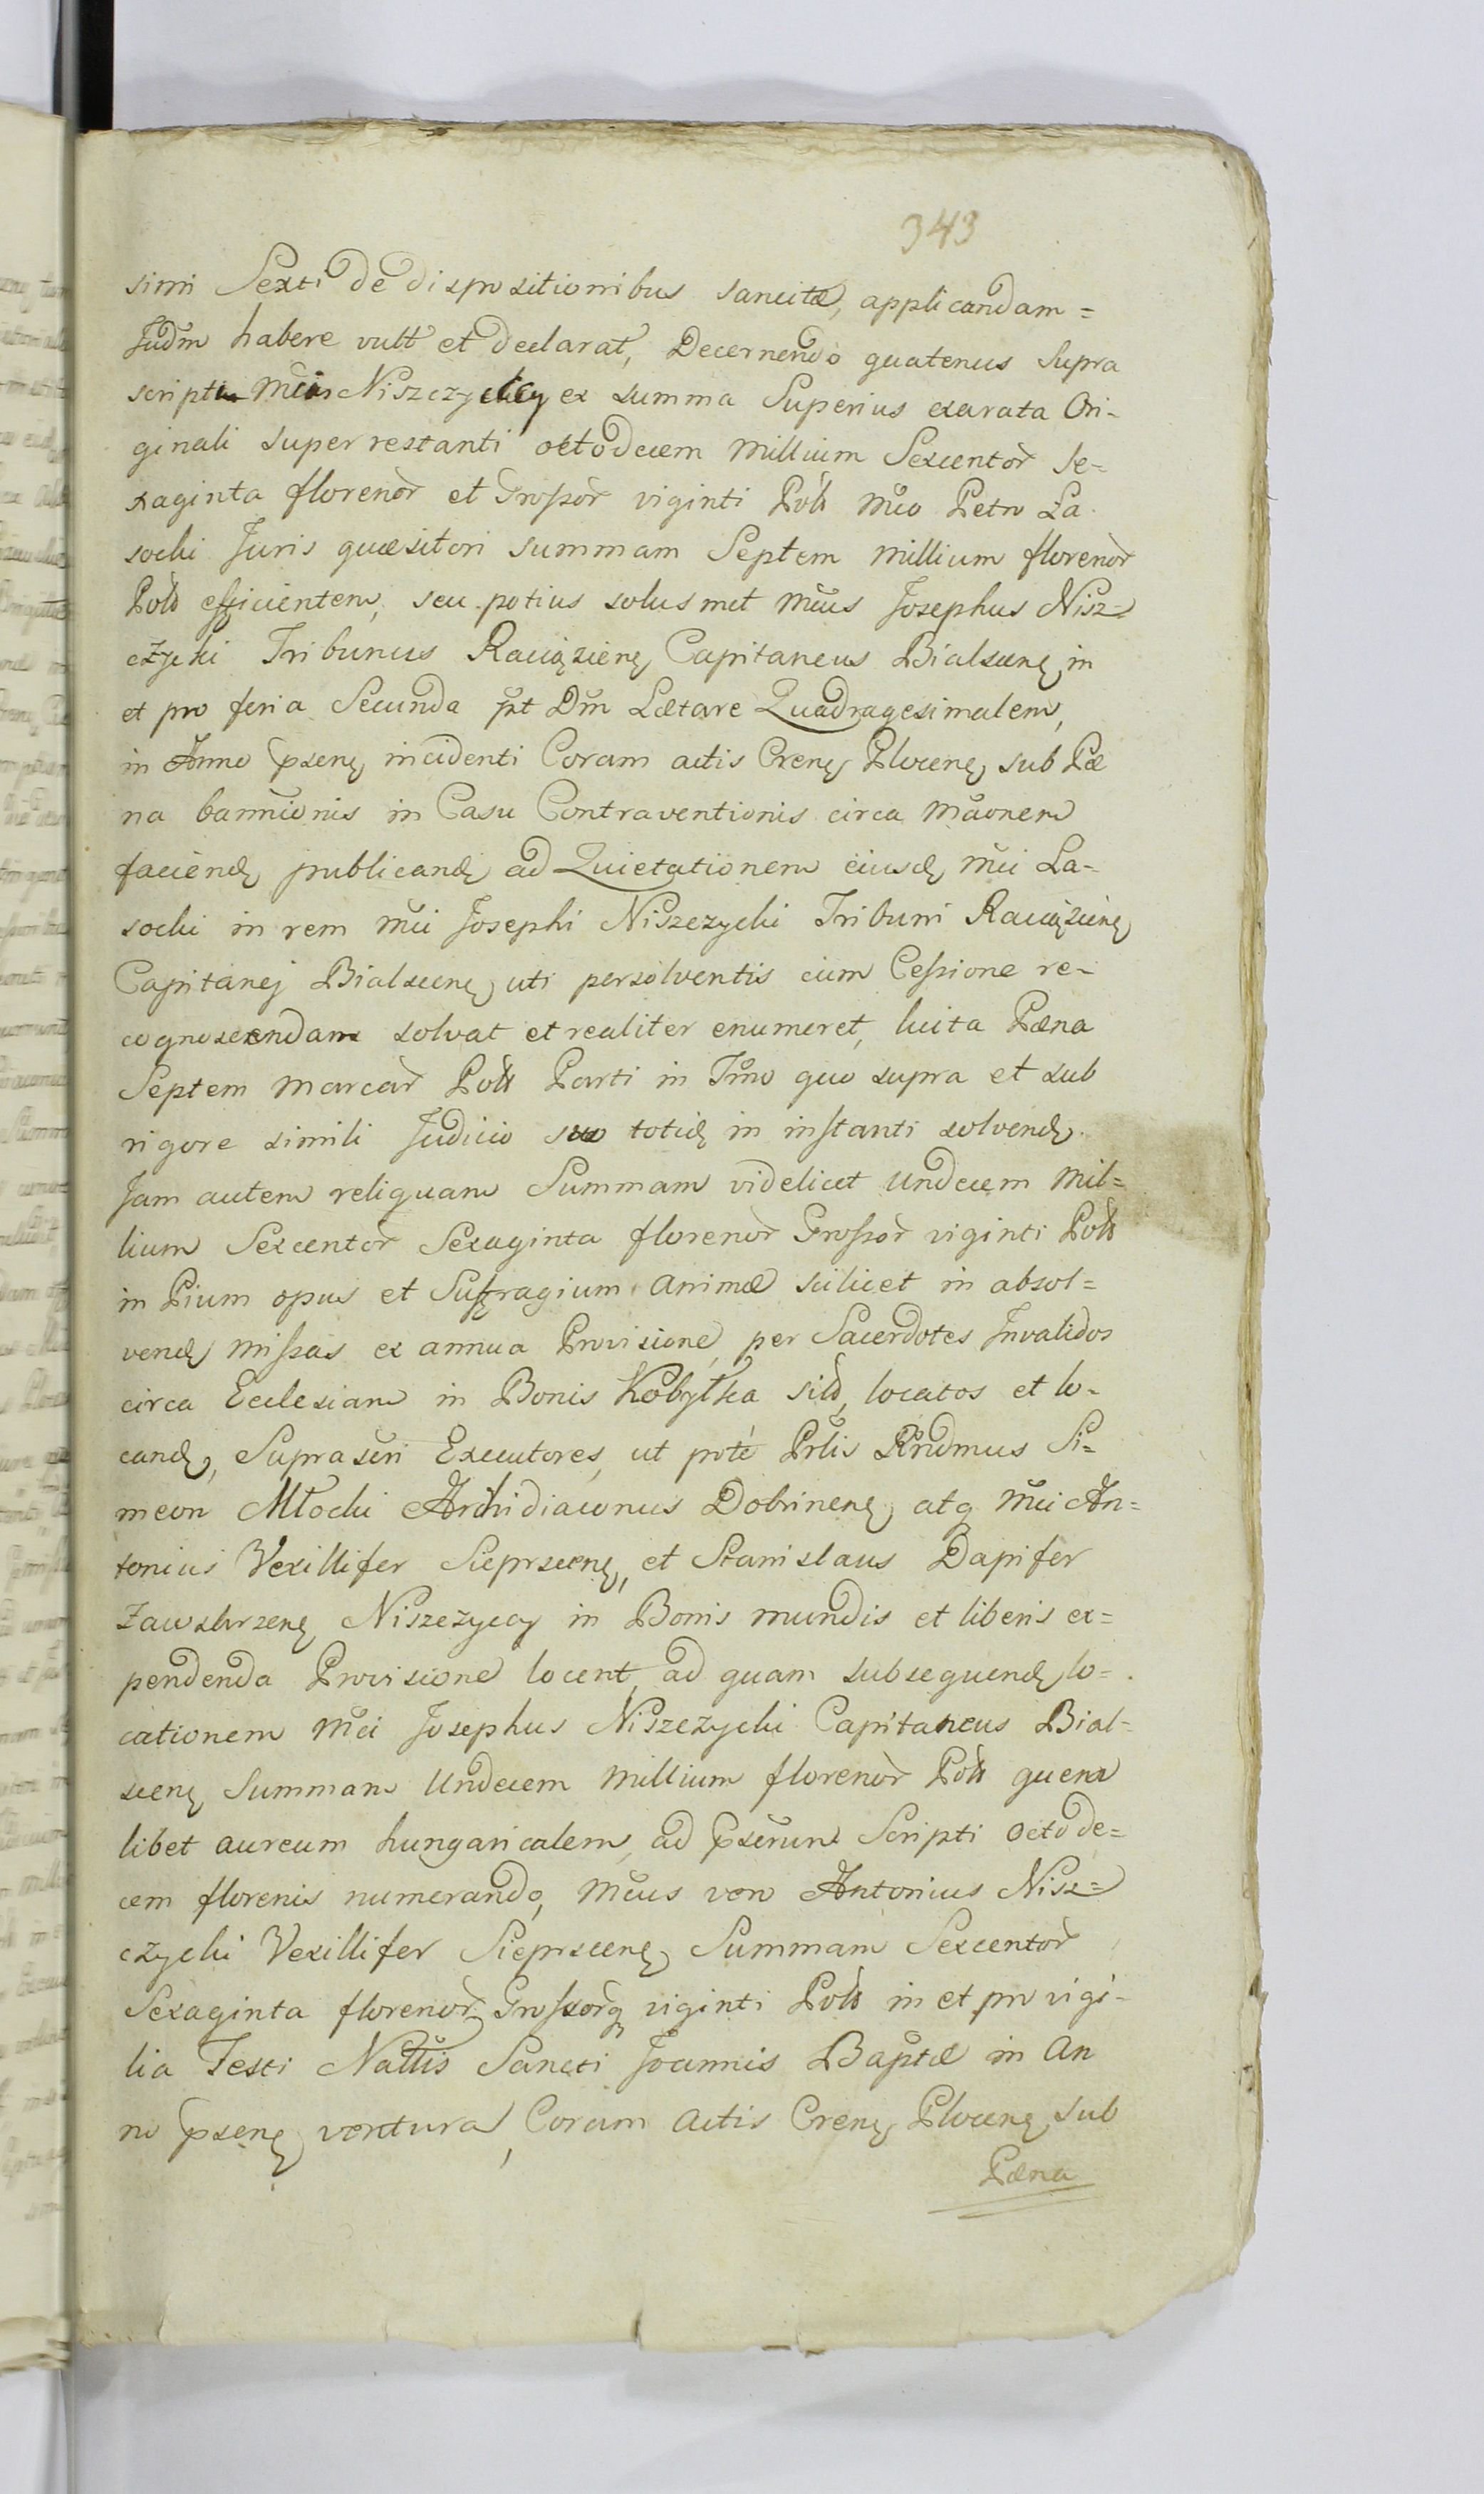 343
simi Sexti de dispositionibus sancitæ, applicandam =
Judm habere vult et declarat, Decernendo quatenus supra
scripti Mci Niszczyccy ex summa Superius exarata Ori-
ginali super restanti octodecem millium Sexcentor Se-
xaginta florenor et Grossor viginti Poll Mco Petro La-
socki Juris quæsitori summam Septem millium florenor
Poll efficientem, seu potius solus met Mcus Josephus Nisz=
czycki Tribunus Raciązienę Capitaneus Bialscenę in
et pro feria Secunda pt Dm Lætare Quadragesimalem,
in Anno psenę incidenti Coram actis Crenę Plocenę sub Pæ
na bannionis in Casu Contraventionis circa maonem
faciendę publicandę ad Quietationem eiusdę Mci La-
socki in rem Mci Josephi Niszczycki Tribuni Raciązienę
Capitanej Bialscenę uti persolventis cum Cessione re-
cognoscendam solvat et realiter enumeret, lucita Pæna
Septem marcar Poll Parti in Tmo quo supra et sub
rigore simili Judicio suo totidę in instanti solvendę.
Jam autem reliquam Summam videlicet undecem mil=
lium Sexcentor Sexaginta florenor Grossor viginti Poll
in Pium opus et Suffragium animæ scilicet in absol=
vendę missas ex annua Provisione, per Sacerdotes Invalidos
circa Ecclesiam in Bonis Kobyłka sitō, locatos et lo-
candę, Suprascri Executores, ut poté Prlis Rndmus Si=
meon Młocki Archidiaconus Dobrinenę atq Mci An=
tonius Vexillifer Sieprscenę, et Stanislaus Dapifer
Zawskrzenę Niszczyccy in Bonis mundis et liberis ex=
pendenda Provisione locent, ad quam subsequendę lo=
cationem Mci Josephus Niszczycki Capitaneus Bial=
scenę Summam Undecem millium florenor Poll quem
libet aureum hungaricalem, ad pserum Scripti octode=
cem florenis numerando, Mcus vero Antonius Nisz=
czycki Vexillifer Sieprscenę Summam Sexcentor
Sexaginta florenor Grossorq viginti Poll in et pro vigi-
lia Festi Nattis Sancti Joannis Baptæ in An
no psenę ventura, Coram Actis Crenę Plocenę sub
Pæna